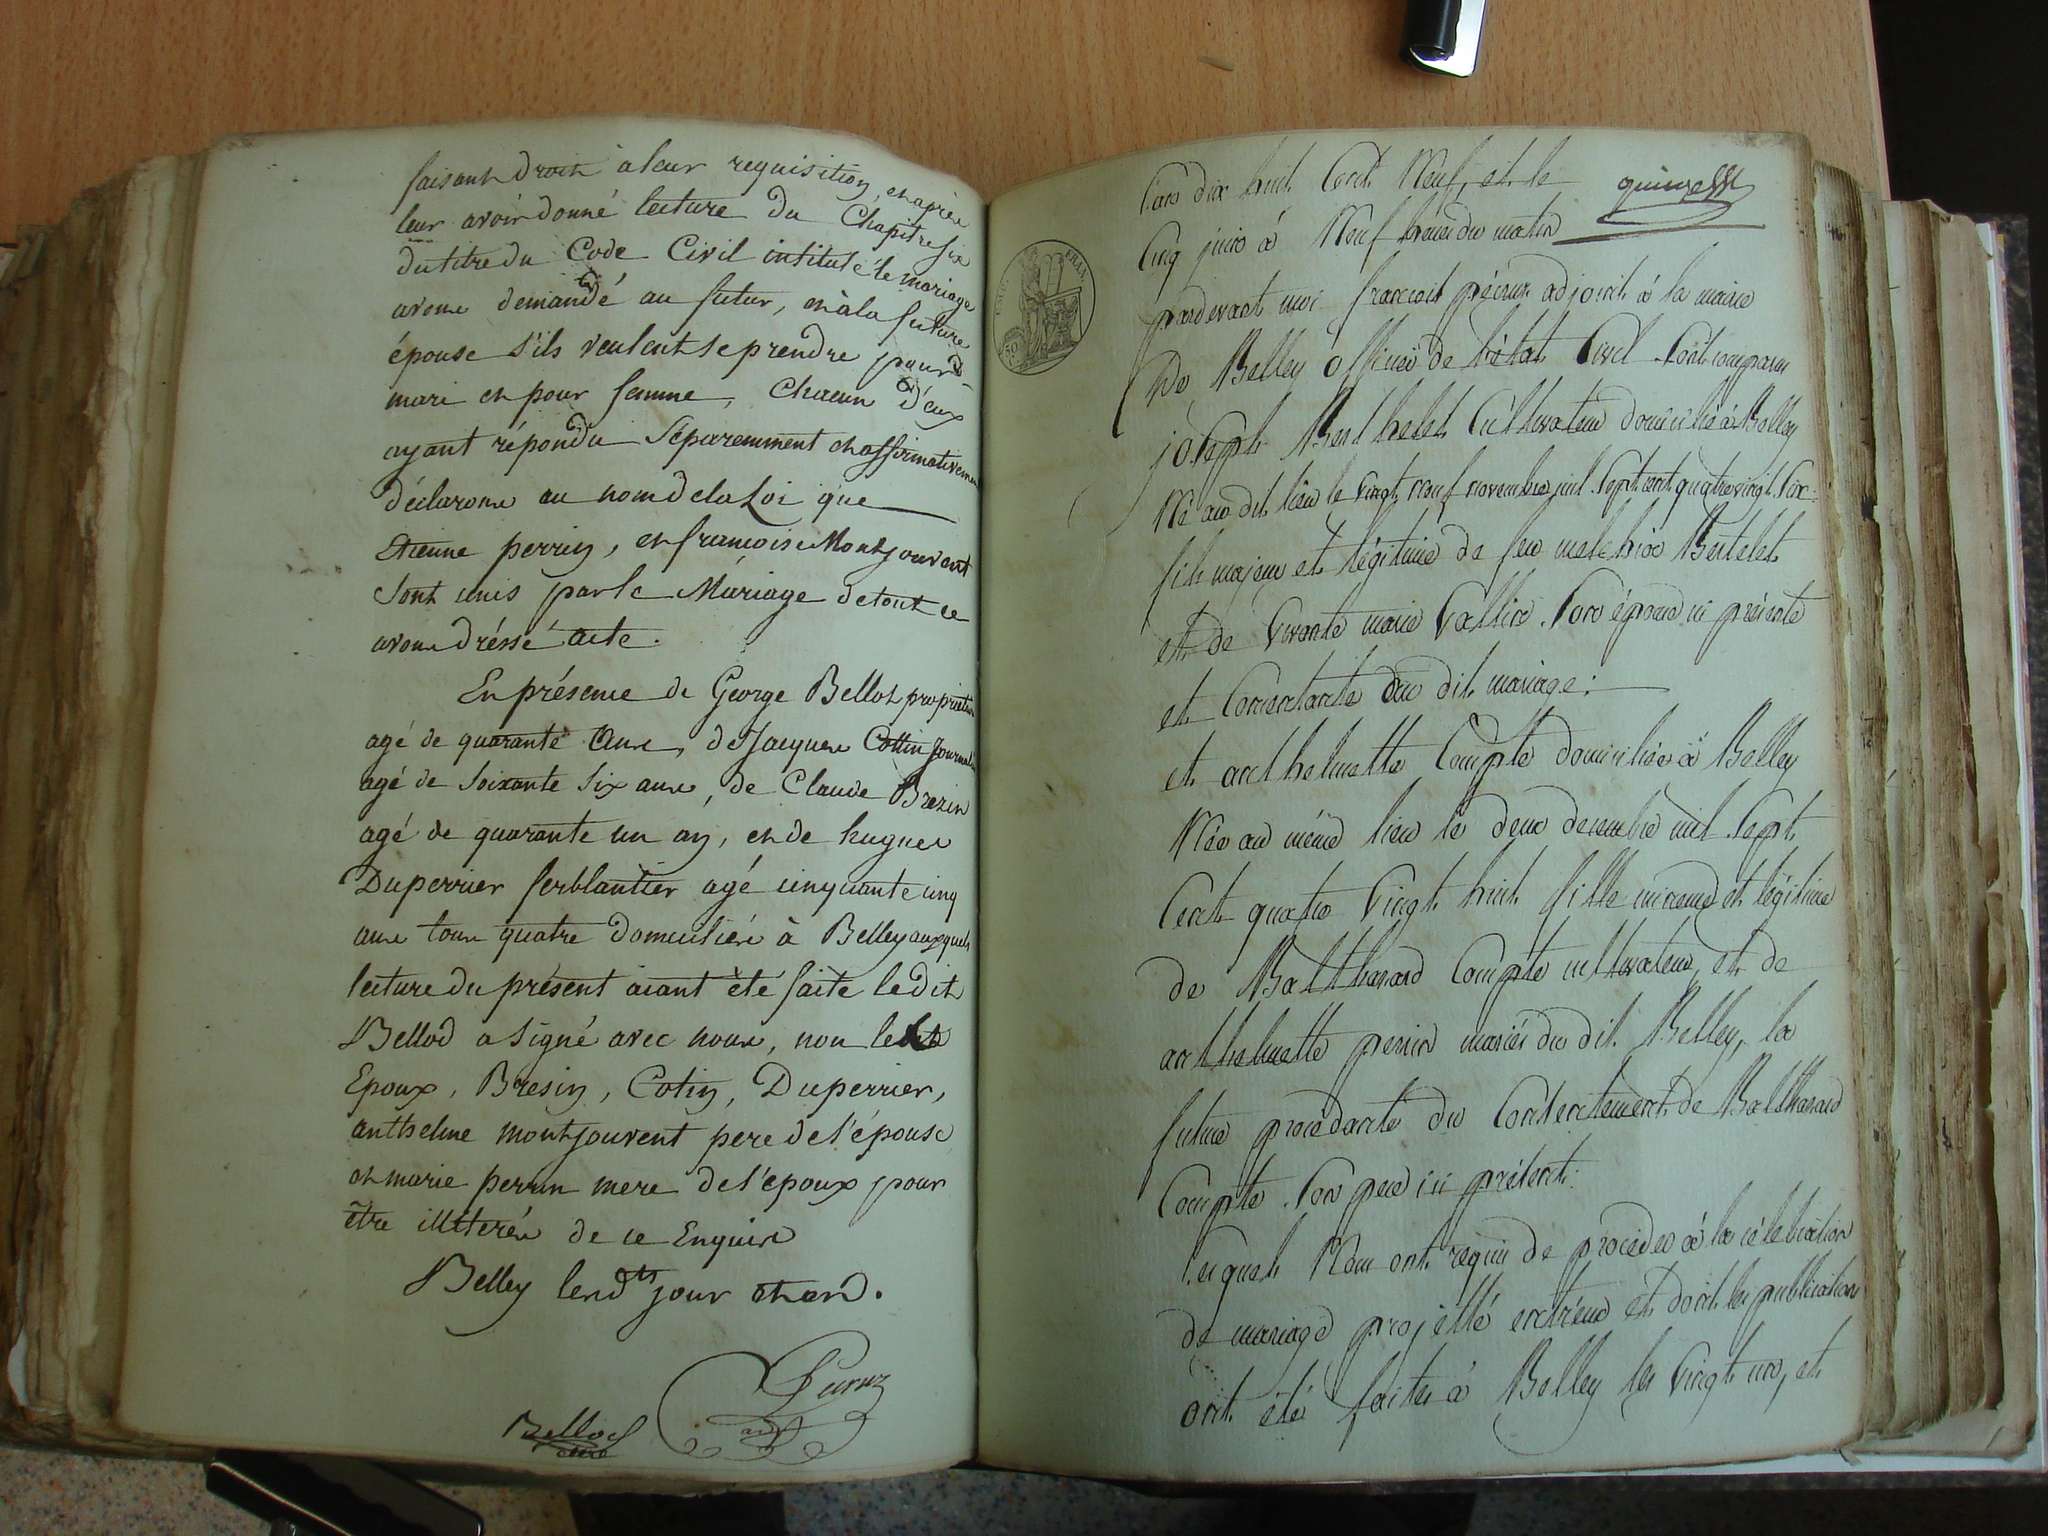 faisant droit à leur requisition, et après
leur avoir donné lecture du Chapitre six
du titre du Code Civil intitulé le mariage
avons demandé au futur, et à la future
épouse s'ils veulent se prendre pour
mari et pour femme, chacun d'eux
ayant répondu séparemment et affirmativement
déclarons au nom de la Loi que
Etienne perrin, et françoise Montjouvent
sont unis par le Mariage de tout ce
avons dréssé acte.
En présence de George Bellod propriétaire
agé de quarante Ans, de Jacques Cottin Journalier
agé de soixante six ans, de Claude Brezin
agé de quarante un an, et de hugues
Duperrier ferblantier agé cinquante cinq
ans tous quatre domiciliés à Belley auxquels
lecture du présent aiant été faite le dit
Bellod a signé avec nous, non les
Epoux, Bresin, Cotin, Duperrier,
anthelme montjouvent pere de l'épouse
et marie perrin mere de l'époux pour
être illiterés de ce Enquis
Belley lesdts jour et an.
Bellod
adjt
l'an dix huit Cent Neuf, et le
Cinq juin à Neuf heures du matin
pardevant moi francois adjoint à la mairie
de Belley officier de l'état Civil sont comparus
joseph Berthelet Cultivateur domicilié à Belley
Né au dit lieu le vingt neuf novembre mil sept cent quatre vingt six
fils majeur et légitime de feu melchior Bertelet
et de vivante marie Vallin son épouse ici présente
et Consentante au dit mariage:
et anthelmette Compte domiciliée à Belley
Née au même lieu le deux decembre mil sept
Cent quatre Vingt huit fille mineure et légitime
de Balthasard Compte cultivateur, et de
anthelmette perrin mariés du dit Belley, la
future procédante du Consentement de Balthasard
Compte son pere ici présent:
lesquels Nous ont requis de proceder à la célébration
de mariage projetté entr'eux et dont les publications
ont été faites à Belley les vingt un, et